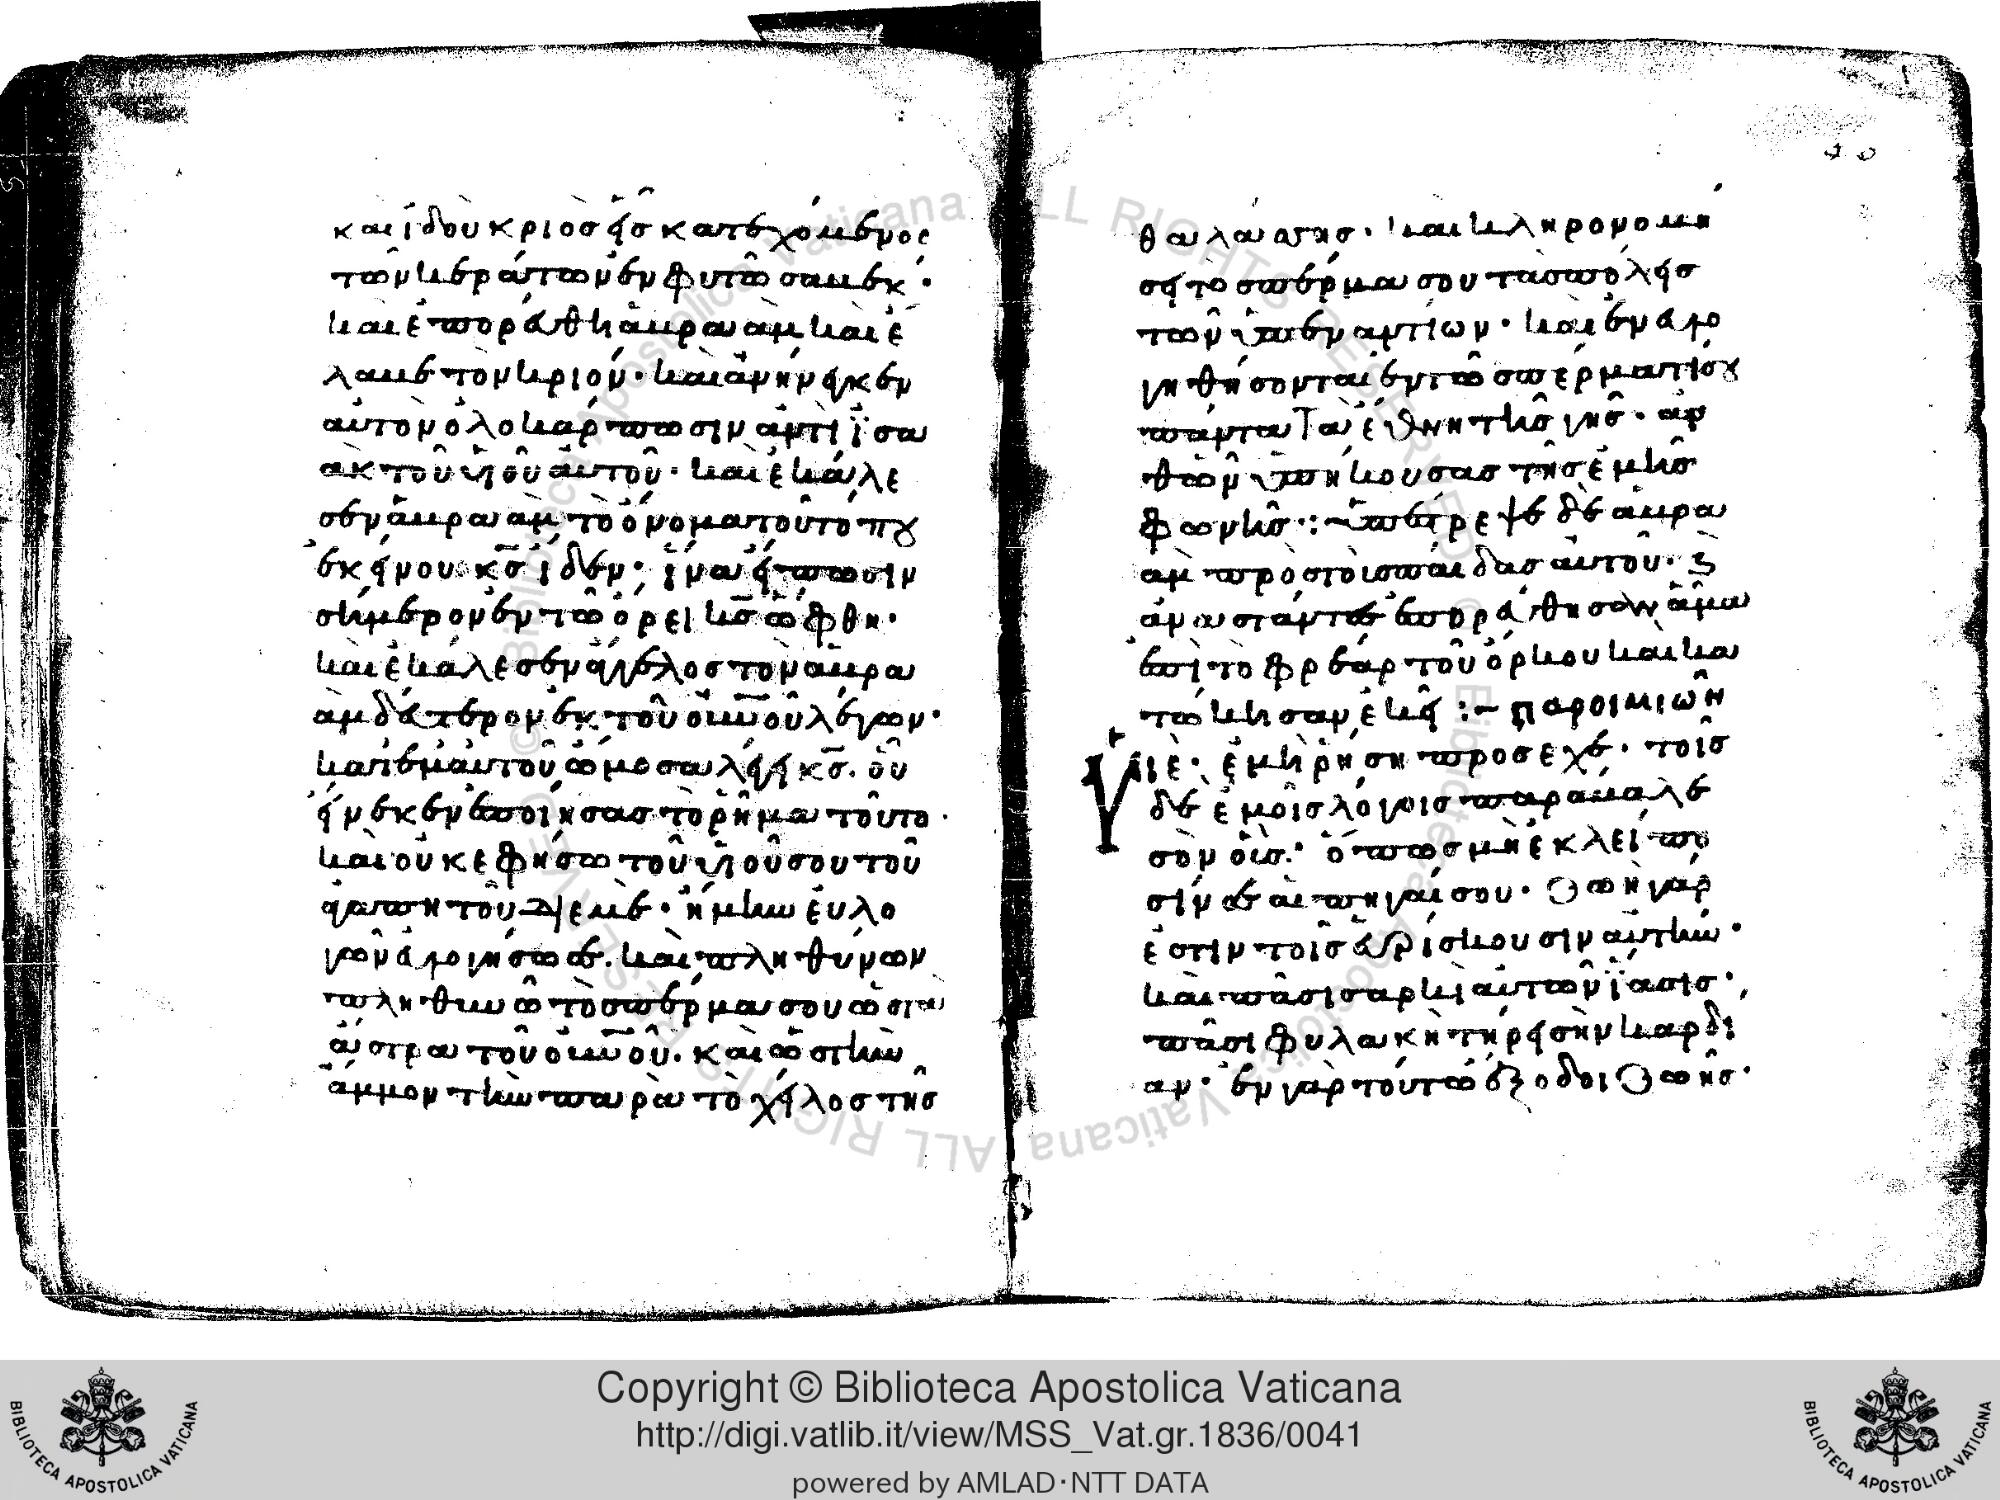 και ἰδοὺ κριὸς εἷς κατεχόμενος
τῶν κεράτων ἐν φυτῶ σαβέκ·
και ἐπορεύθη ἁβραὰμ και ἔ
λαβε τὸν κριόν· και ἀνήνεγκεν
αὐτὸν ὁλοκάρπωσιν ἀντὶ ἰσα
ὰκ τοῦ υἱοῦ αὐτοῦ· και ἐκάλε
σεν ἁβραὰμ τὸ ὄνομα τοῦ τόπου
ἐκείνου κς ἴδεν· ἵνα εἴπωσιν
σήμερον ἐν τῶ ὄρει κς ὤφθη·
και ἐκάλεσεν ἄγγελος τὸν ἁβρα
ὰμ δεύτερον ἐκ τοῦ οὐνοῦ λέγων·
κατ' ἐμαυτοῦ ὤμοσα λέγει κς· οὗ
εἵνεκεν ἐποίησας τὸ ῥῆμα τοῦτο·
και οὐκ ἐφήσω τοῦ υἱοῦ σου τοῦ
ἀγαπητοῦ δι' ἐμὲ· ἠ μὴν εὐλο
γῶν εὐλογήσω σε· και πληθύνων
πληθυνῶ τὸ σπέρμα σου ὡσεὶ τὰ
ἄστρα τοῦ οὐνοῦ· και ὡσεὶ τὴν
ἄμμον τὴν παρὰ τὸ χεῖλος τῆς
θαλάσσης· και κληρονομή
σει τὸ σπέρμα σου τὰς πόλεις
τῶν ὑπεναντίων· και ἐνευλο
γηθήσονται ἐν τῶ σπέρματί σου
πάντα τὰ ἔθνη τῆς γῆς· ἀν
θ' ὧν ὑπήκουσας τῆς ἐμῆς
φωνῆς:~ ὑπέστρεψε δὲ ἁβρα
ὰμ πρὸς τοὺς παῖδας αὐτοῦ· και
ἀναστάντες ἐπορεύθησαν ἅμα
ἐπὶ τὸ φρέαρ τοῦ ὅρκου και κα
τώκησαν ἐκεῖ:~ παροιμιῶν
Υἱὲ· ἐμῆ ῥήσει πρόσεχε· τοῖς
δὲ ἐμοῖς λόγοις παράβαλε
σὸν οὖς· ὅπως μὴ ἐκλείπω
σίν σε αἱ πηγαί σου· ζωὴ γάρ
ἐστιν τοῖς εὑρίσκουσιν αὐτὴν·
και πᾶσι σαρκὶ αὐτῶν ἴασις·
πᾶσι φυλακῆ τήρει σὴν καρδί
αν· ἐν γὰρ τούτω ἔξοδοι ζωῆς·
Copyright © Biblioteca Apostolica Vaticana
http://digi.vatlib.it/view/MSS_Vat.gr.1836/0041
powered by AMLAD·NTT DATA